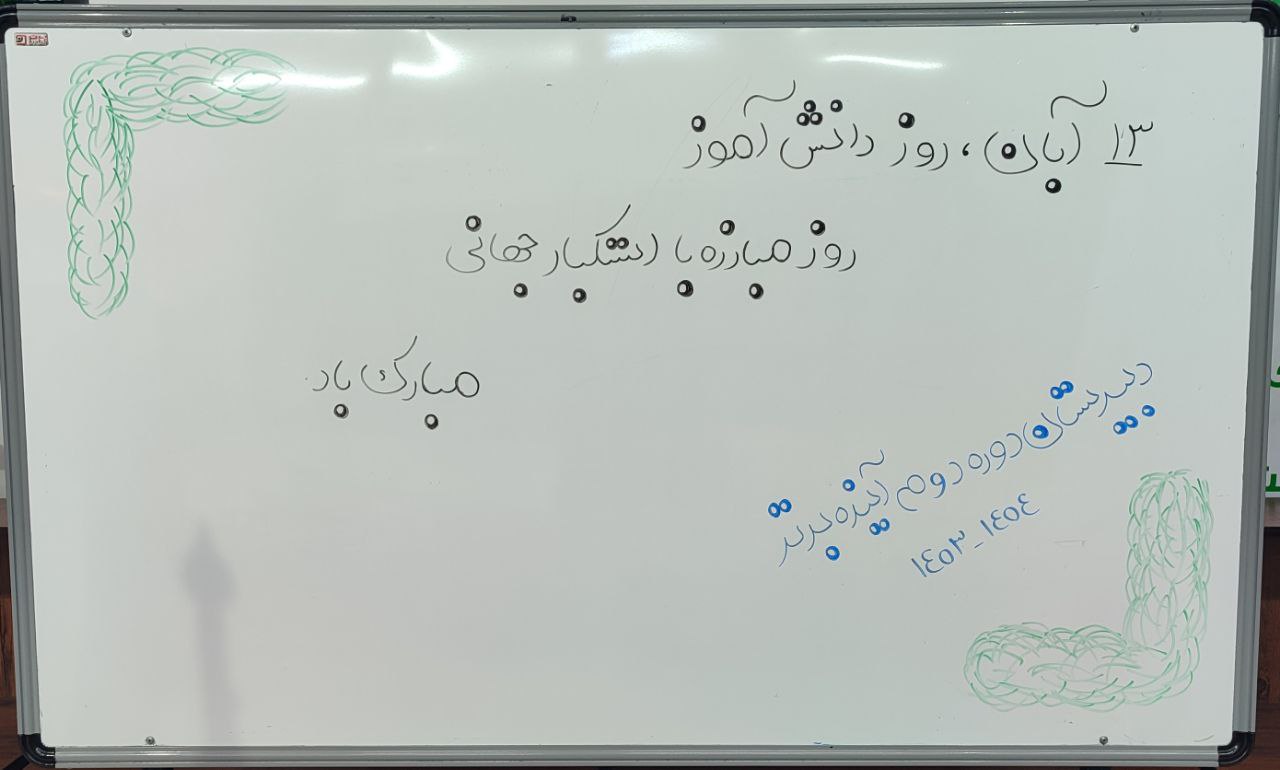 ۱۳ آبان، روز دانش آموز
روز مبارزه با استکبار جهانی
مبارک باد
دبیرستان دوره دوم آینده برتر
۱۴۰۳-۱۴۰۴